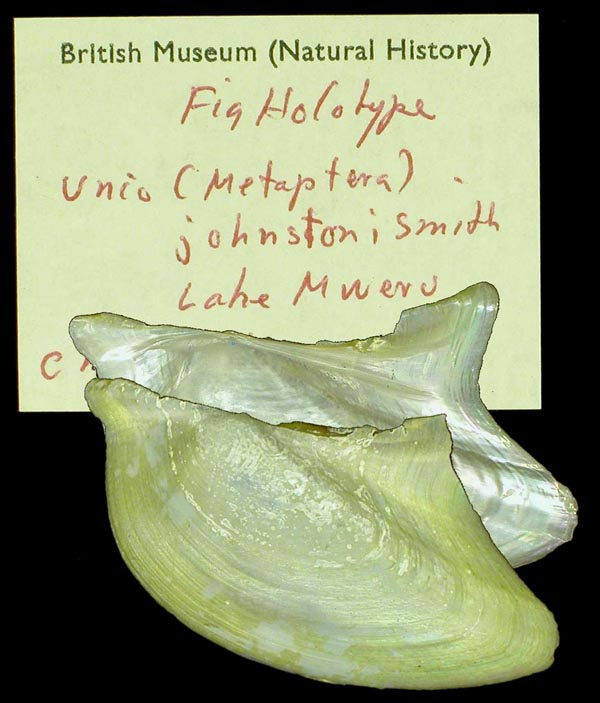 British Museum (Natural History)
Fig Holotype
Unio (Metaptera)
johnstoni Smith
Lake Mweru
C